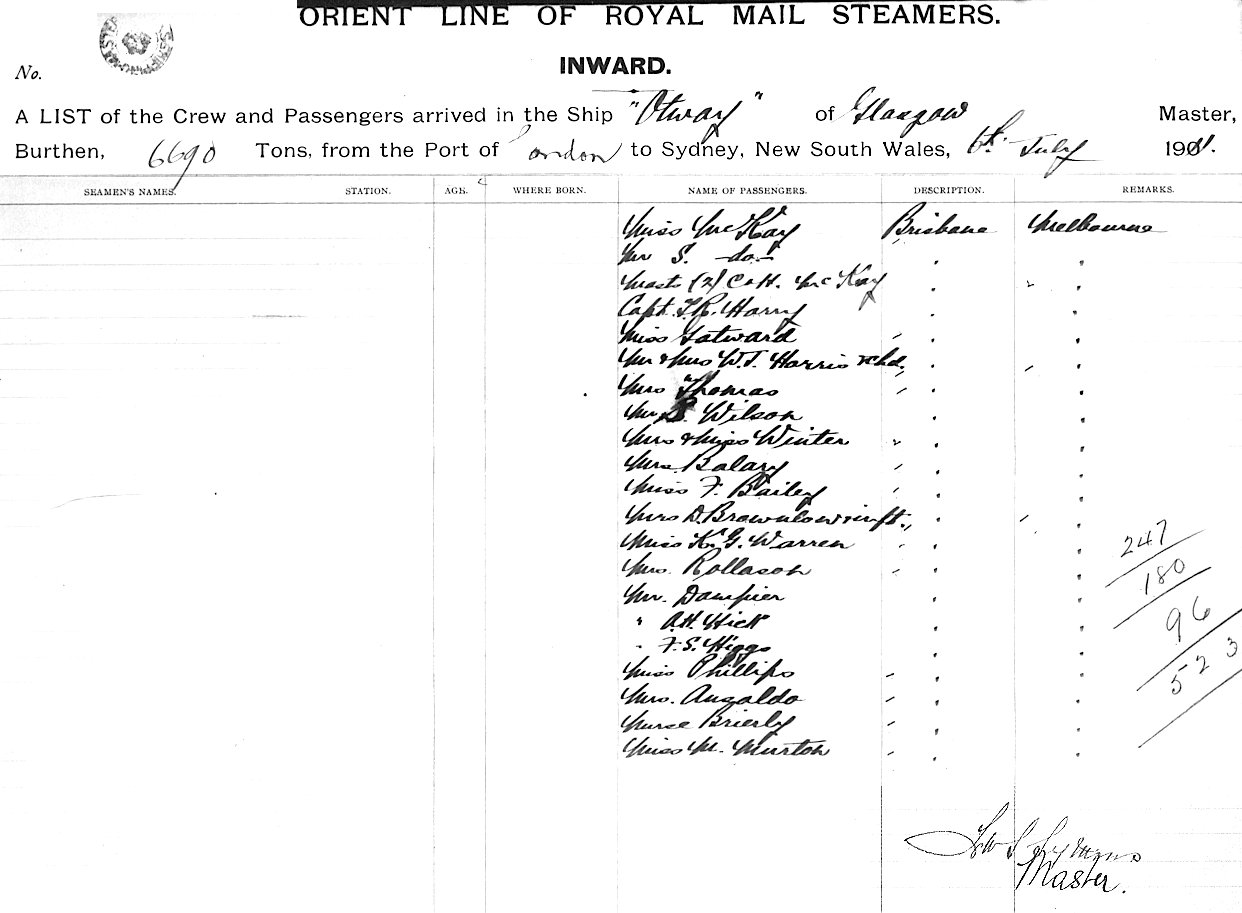 ORIENT LINE OF ROYAL MAIL STEAMERS.
No.
INWARD.
A LIST of the Crew and Passengers arrived in the Ship "Otway" of Glasgow Master,
Burthen, 6690 Tons, from the Port of London to Sydney, New South Wales, 6th July 1901.
SEAMEN'S NAMES. STATION. AGE. WHERE BORN. NAME OF PASSENGERS. DESCRIPTION. REMARKS.
Miss McKay Brisbane Melbourne
Mr S. -do-
Mast (2) C & H. McKay
Capt. T.R. Harry
Miss Gatward
Mr & Mrs W.J. Harris & chd.
Mrs Thomas
Mr Wilson
Mrs & Miss Winter
Mrs Balary
Miss F. Bailey
Mrs D. Brownlow & inft.
Miss K. G. Warren
Mrs. Rollason
Mr. Dampier
" A.H. Hick
" F.S. Higgs
Miss Phillips
Mrs. Angaldo
Nurse Brierly
Miss M. Murton
247
180
96
523
Master.